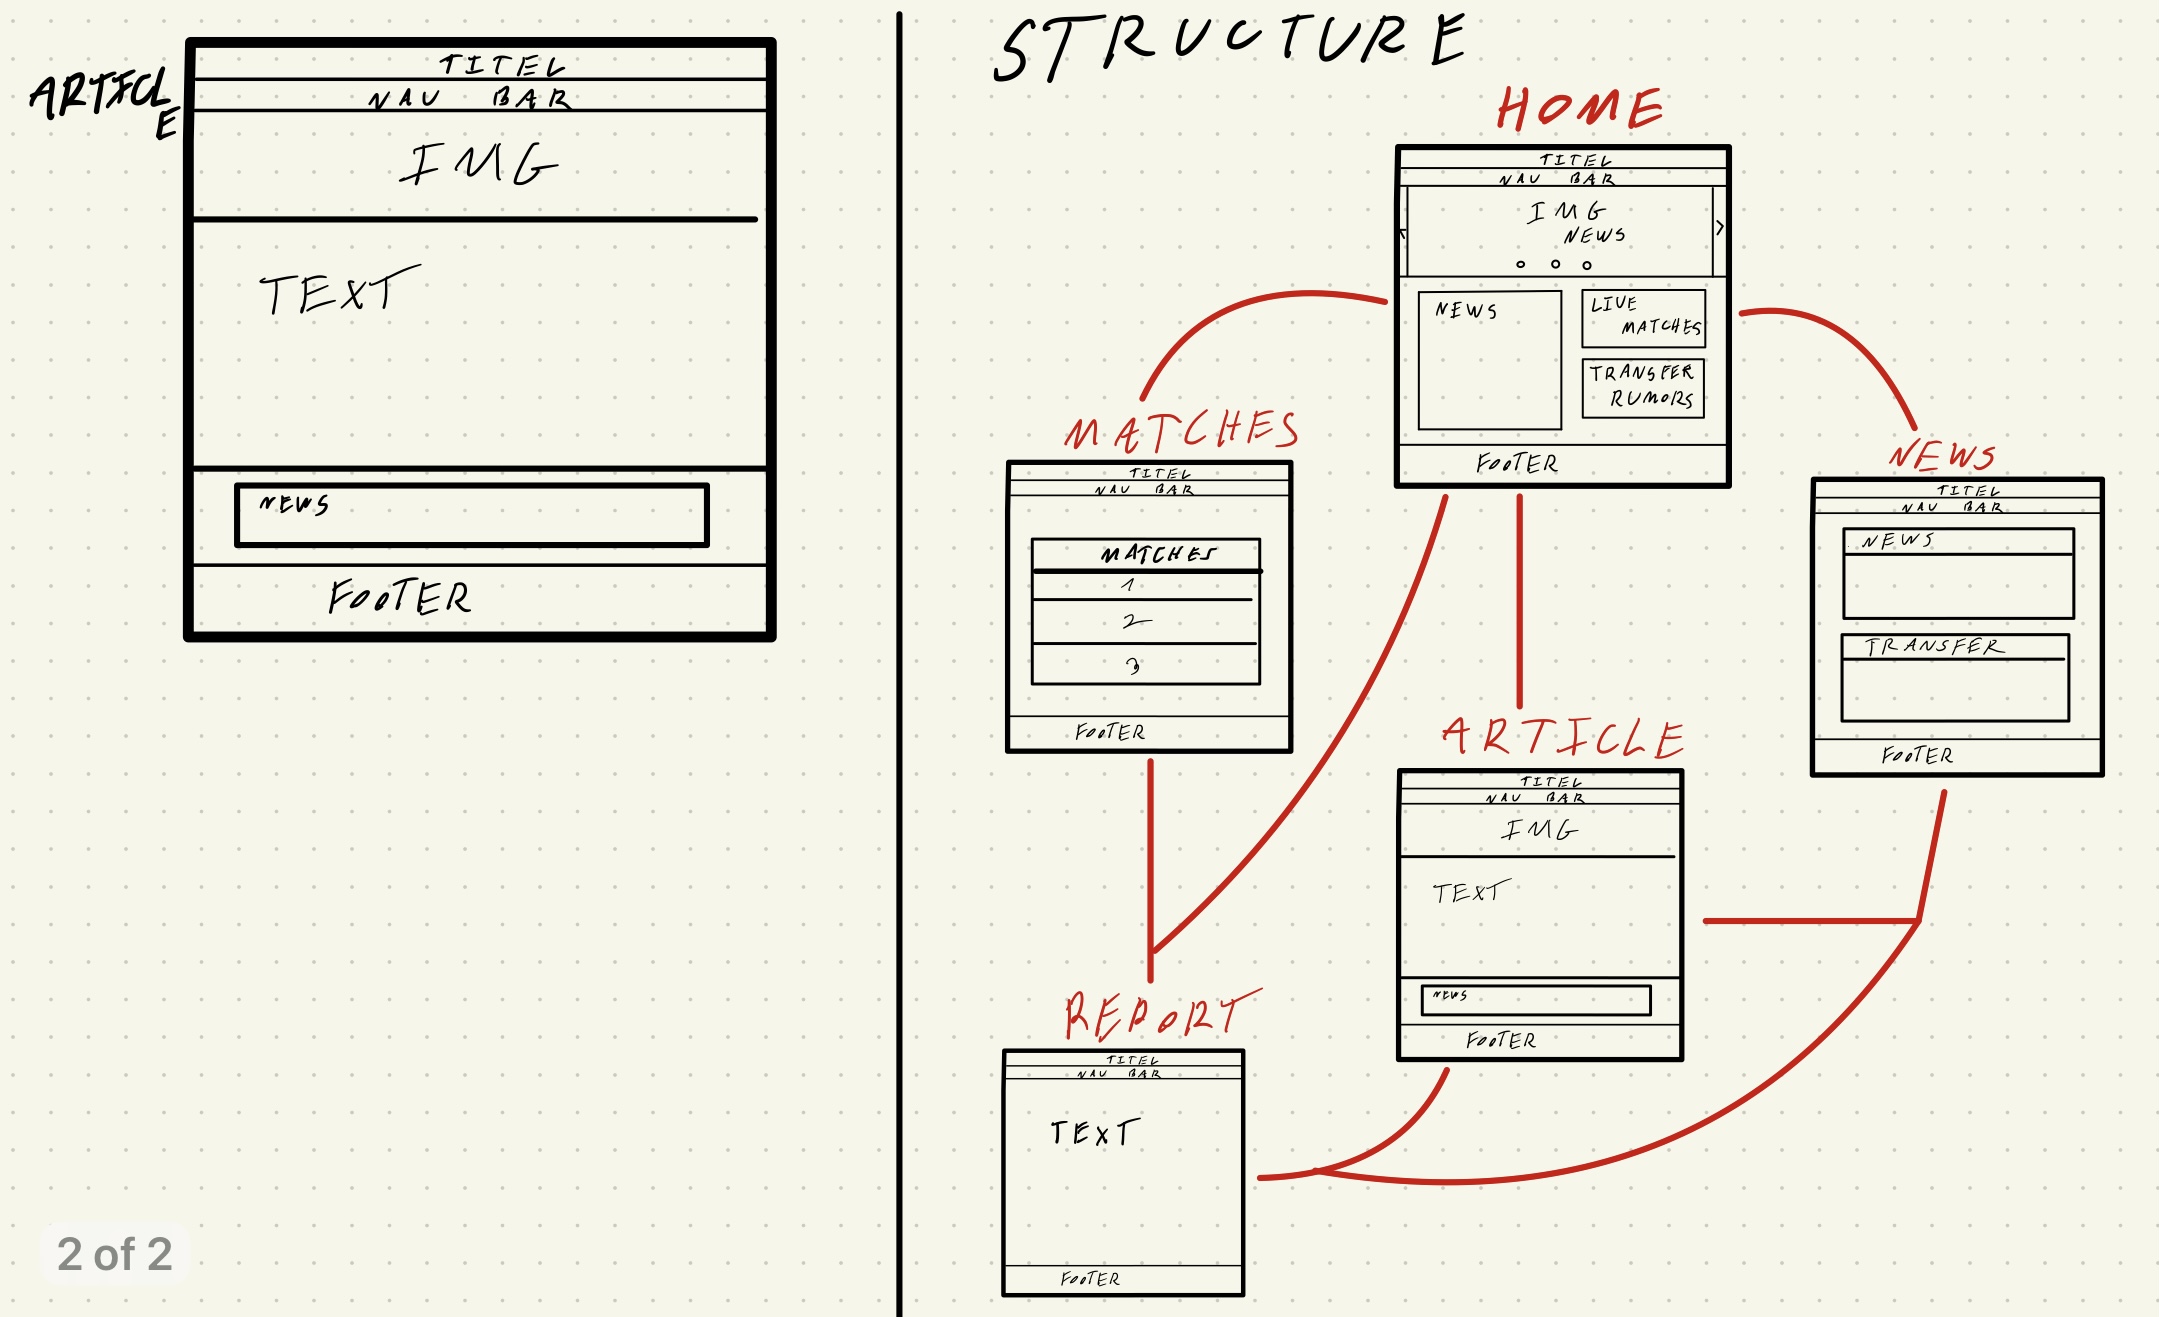 ARTICL
E
TITEL
NAV BAR
IMG
TEXT
NEWS
FOOTER
2 of 2
STRUCTURE
HOME
TITEL
NAV BAR
IMG
NEWS
< >
NEWS
LIVE
MATCHES
TRANSFER
RUMORS
FOOTER
MATCHES
TITEL
NAV BAR
MATCHES
1
2
3
FOOTER
NEWS
TITEL
NAV BAR
NEWS
TRANSFER
FOOTER
ARTICLE
TITEL
NAV BAR
IMG
TEXT
NEWS
FOOTER
REPORT
TITEL
NAV BAR
TEXT
FOOTER